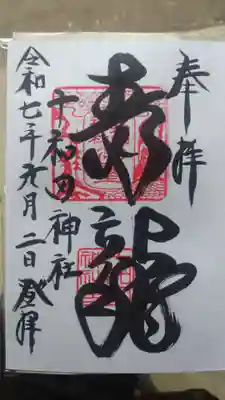 奉拝
青龍
十和田神社
令和七年 月二日登拝